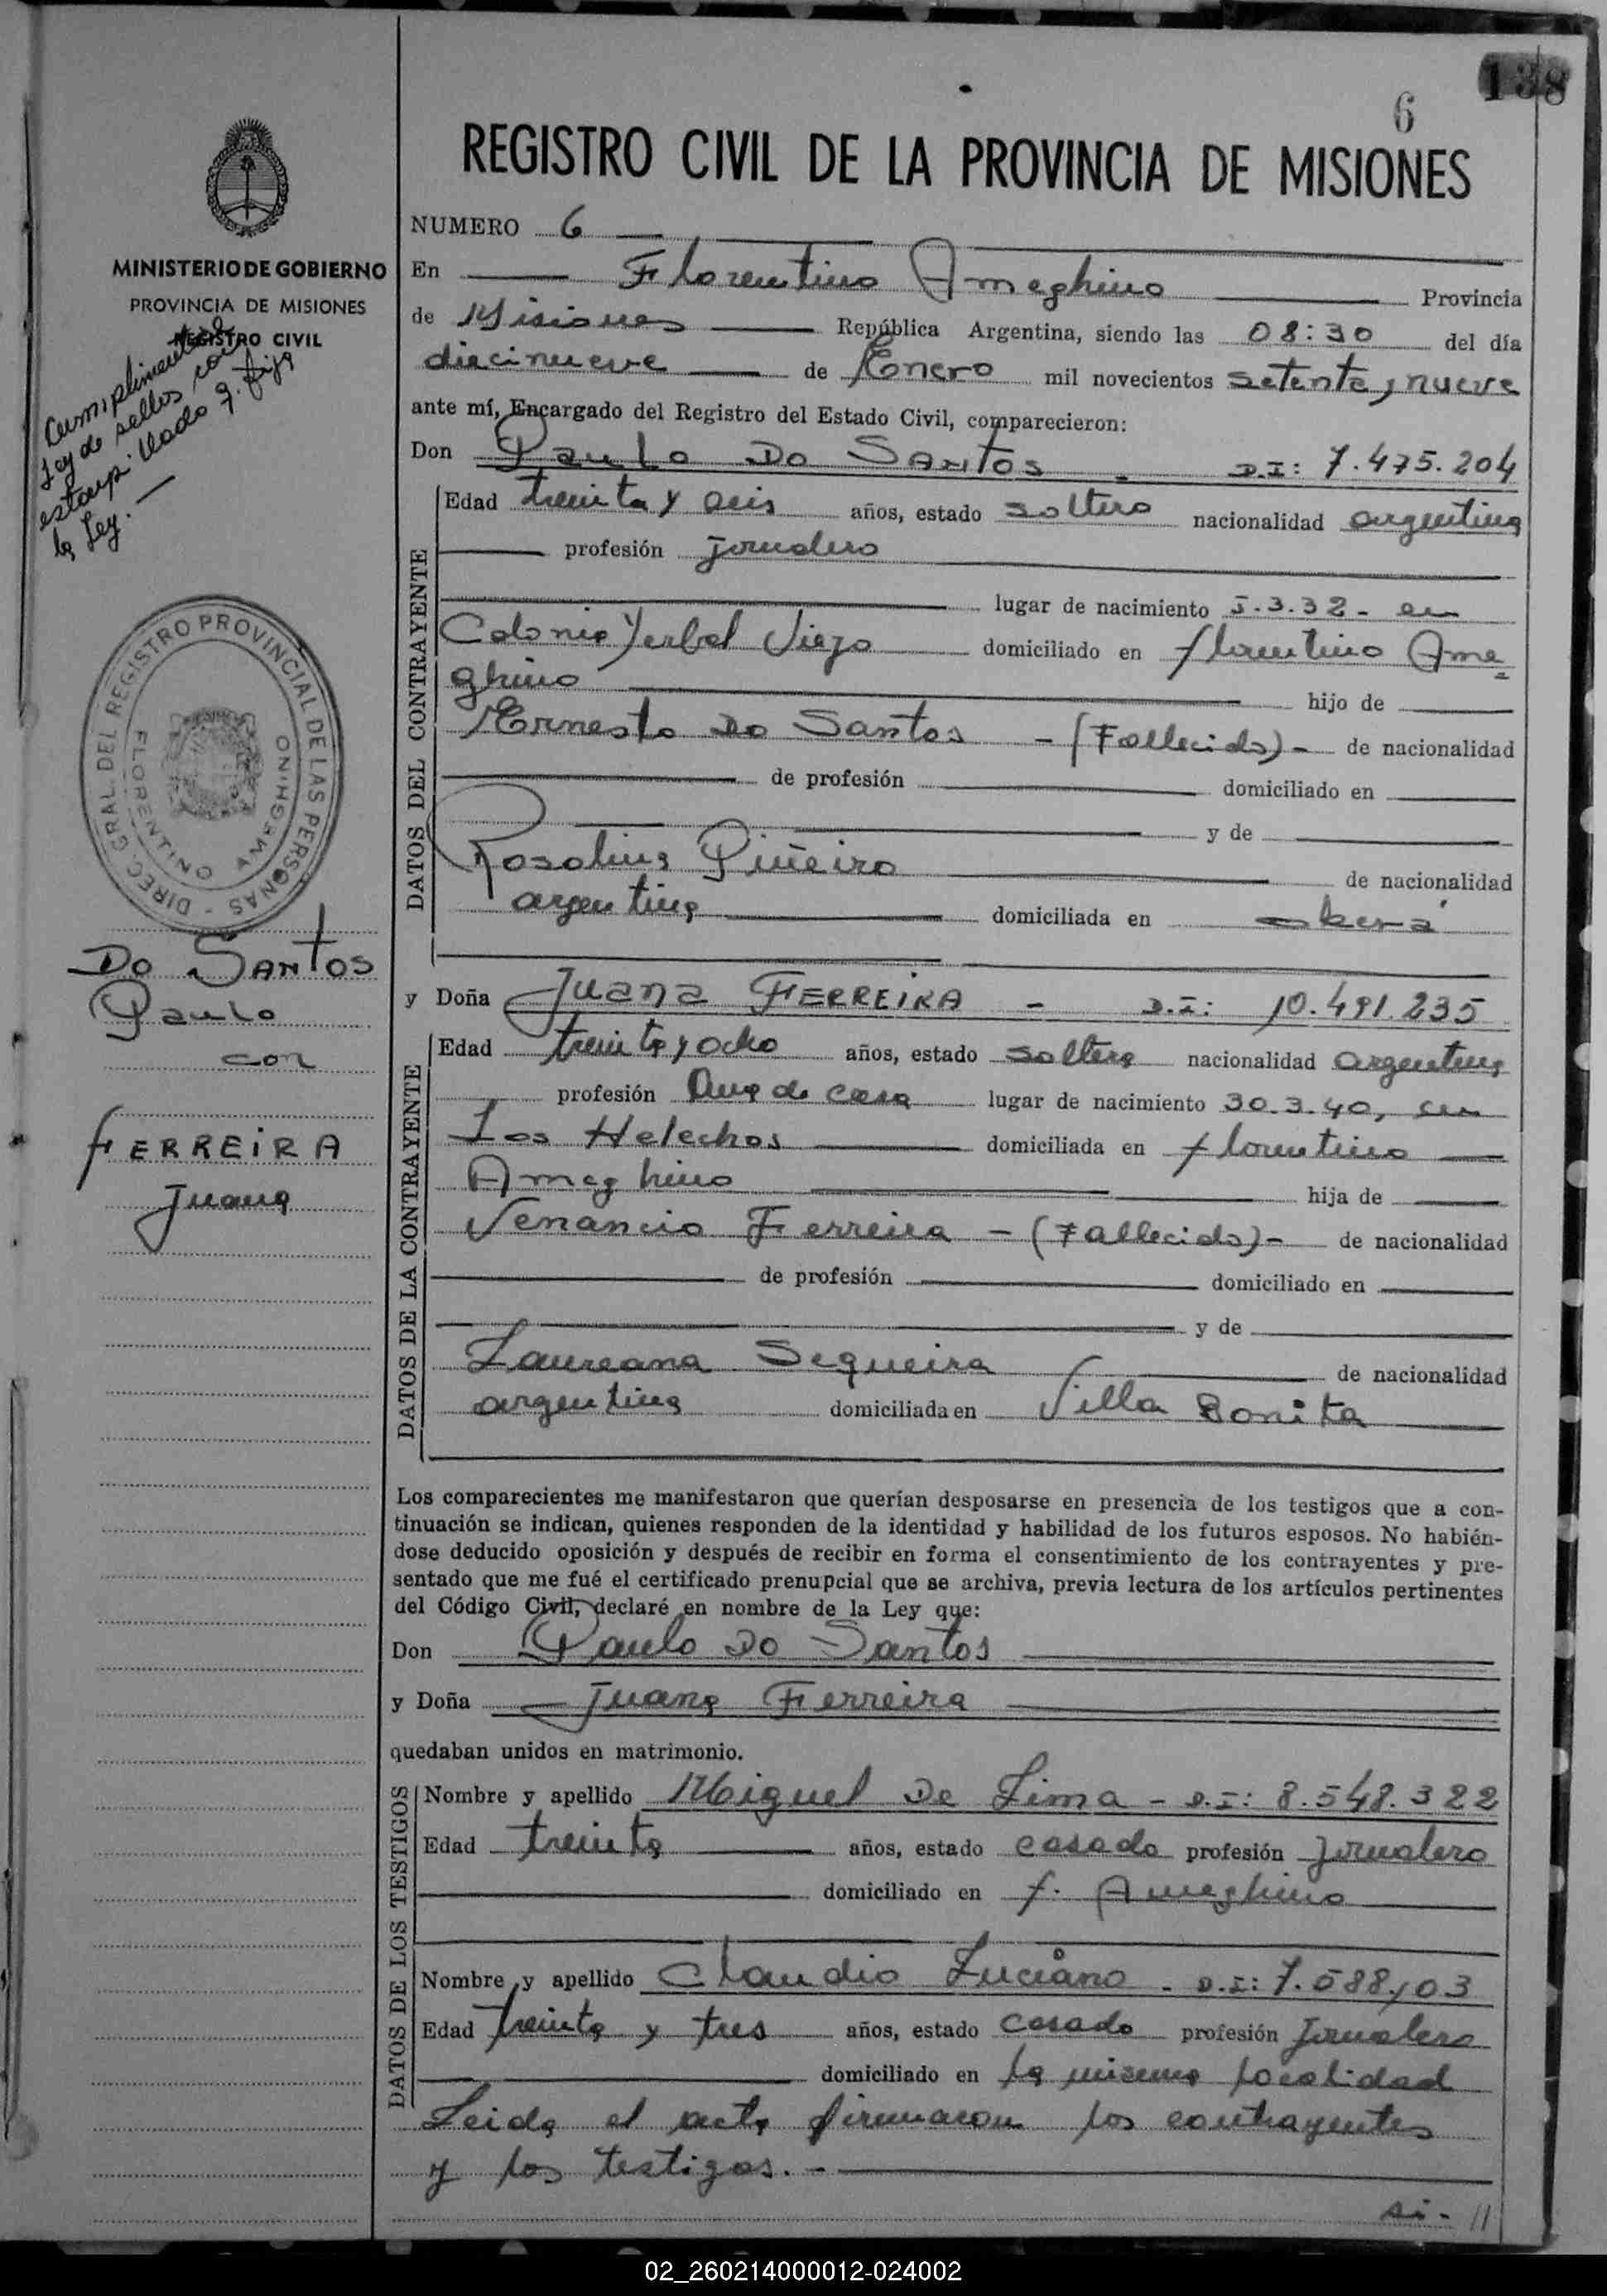 138
6
REGISTRO CIVIL DE LA PROVINCIA DE MISIONES
MINISTERIO DE GOBIERNO
PROVINCIA DE MISIONES
REGISTRO CIVIL
Cumplimentada
Ley de sellos con
estampillado q. fija
la Ley.
DIREC. GRAL. DEL REGISTRO PROVINCIAL DE LAS PERSONAS -
FLORENTINO AMEGHINO
Do Santos
Paulo
con
FERREIRA
Juana
NUMERO 6
En Florentino Ameghino Provincia
de Misiones República Argentina, siendo las 08:30 del día
diecinueve de Enero mil novecientos setenta y nueve
ante mí, Encargado del Registro del Estado Civil, comparecieron:
Don Paulo Do Santos - D.I: 7.475.204
DATOS DEL CONTRAYENTE
Edad treinta y seis años, estado soltero nacionalidad argentina
profesión jornalero
lugar de nacimiento 5.3.32 - en
Colonia Yerbal Viejo domiciliado en florentino Ame
ghino hijo de
Ernesto Do Santos - (Fallecido) - de nacionalidad
de profesión domiciliado en
y de
Rosalina Piñeiro de nacionalidad
argentina domiciliada en oberá
y Doña Juana FERREIRA - D.I: 10.491.235
DATOS DE LA CONTRAYENTE
Edad treinta y ocho años, estado soltera nacionalidad argentina
profesión Ama de casa lugar de nacimiento 30.3.40, en
Los Helechos domiciliada en florentino
Ameghino hija de
Venancio Ferreira - (Fallecido) - de nacionalidad
de profesión domiciliado en
y de
Laureana Sequeira de nacionalidad
argentina domiciliada en Villa Bonita
Los comparecientes me manifestaron que querían desposarse en presencia de los testigos que a con-
tinuación se indican, quienes responden de la identidad y habilidad de los futuros esposos. No habién-
dose deducido oposición y después de recibir en forma el consentimiento de los contrayentes y pre-
sentado que me fué el certificado prenupcial que se archiva, previa lectura de los artículos pertinentes
del Código Civil, declaré en nombre de la Ley que:
Don Paulo Do Santos
y Doña Juana Ferreira
quedaban unidos en matrimonio.
DATOS DE LOS TESTIGOS
Nombre y apellido Miguel De Lima - D.I: 8.548.322
Edad treinta años, estado casado profesión Jornalero
domiciliado en f. Ameghino
Nombre y apellido Claudio Luciano - D.I: 7.588.103
Edad treinta y tres años, estado casado profesión Jornalero
domiciliado en la misma localidad
Leida el acta firmaron los contrayentes
y los testigos. -
si - //
02_260214000012-024002